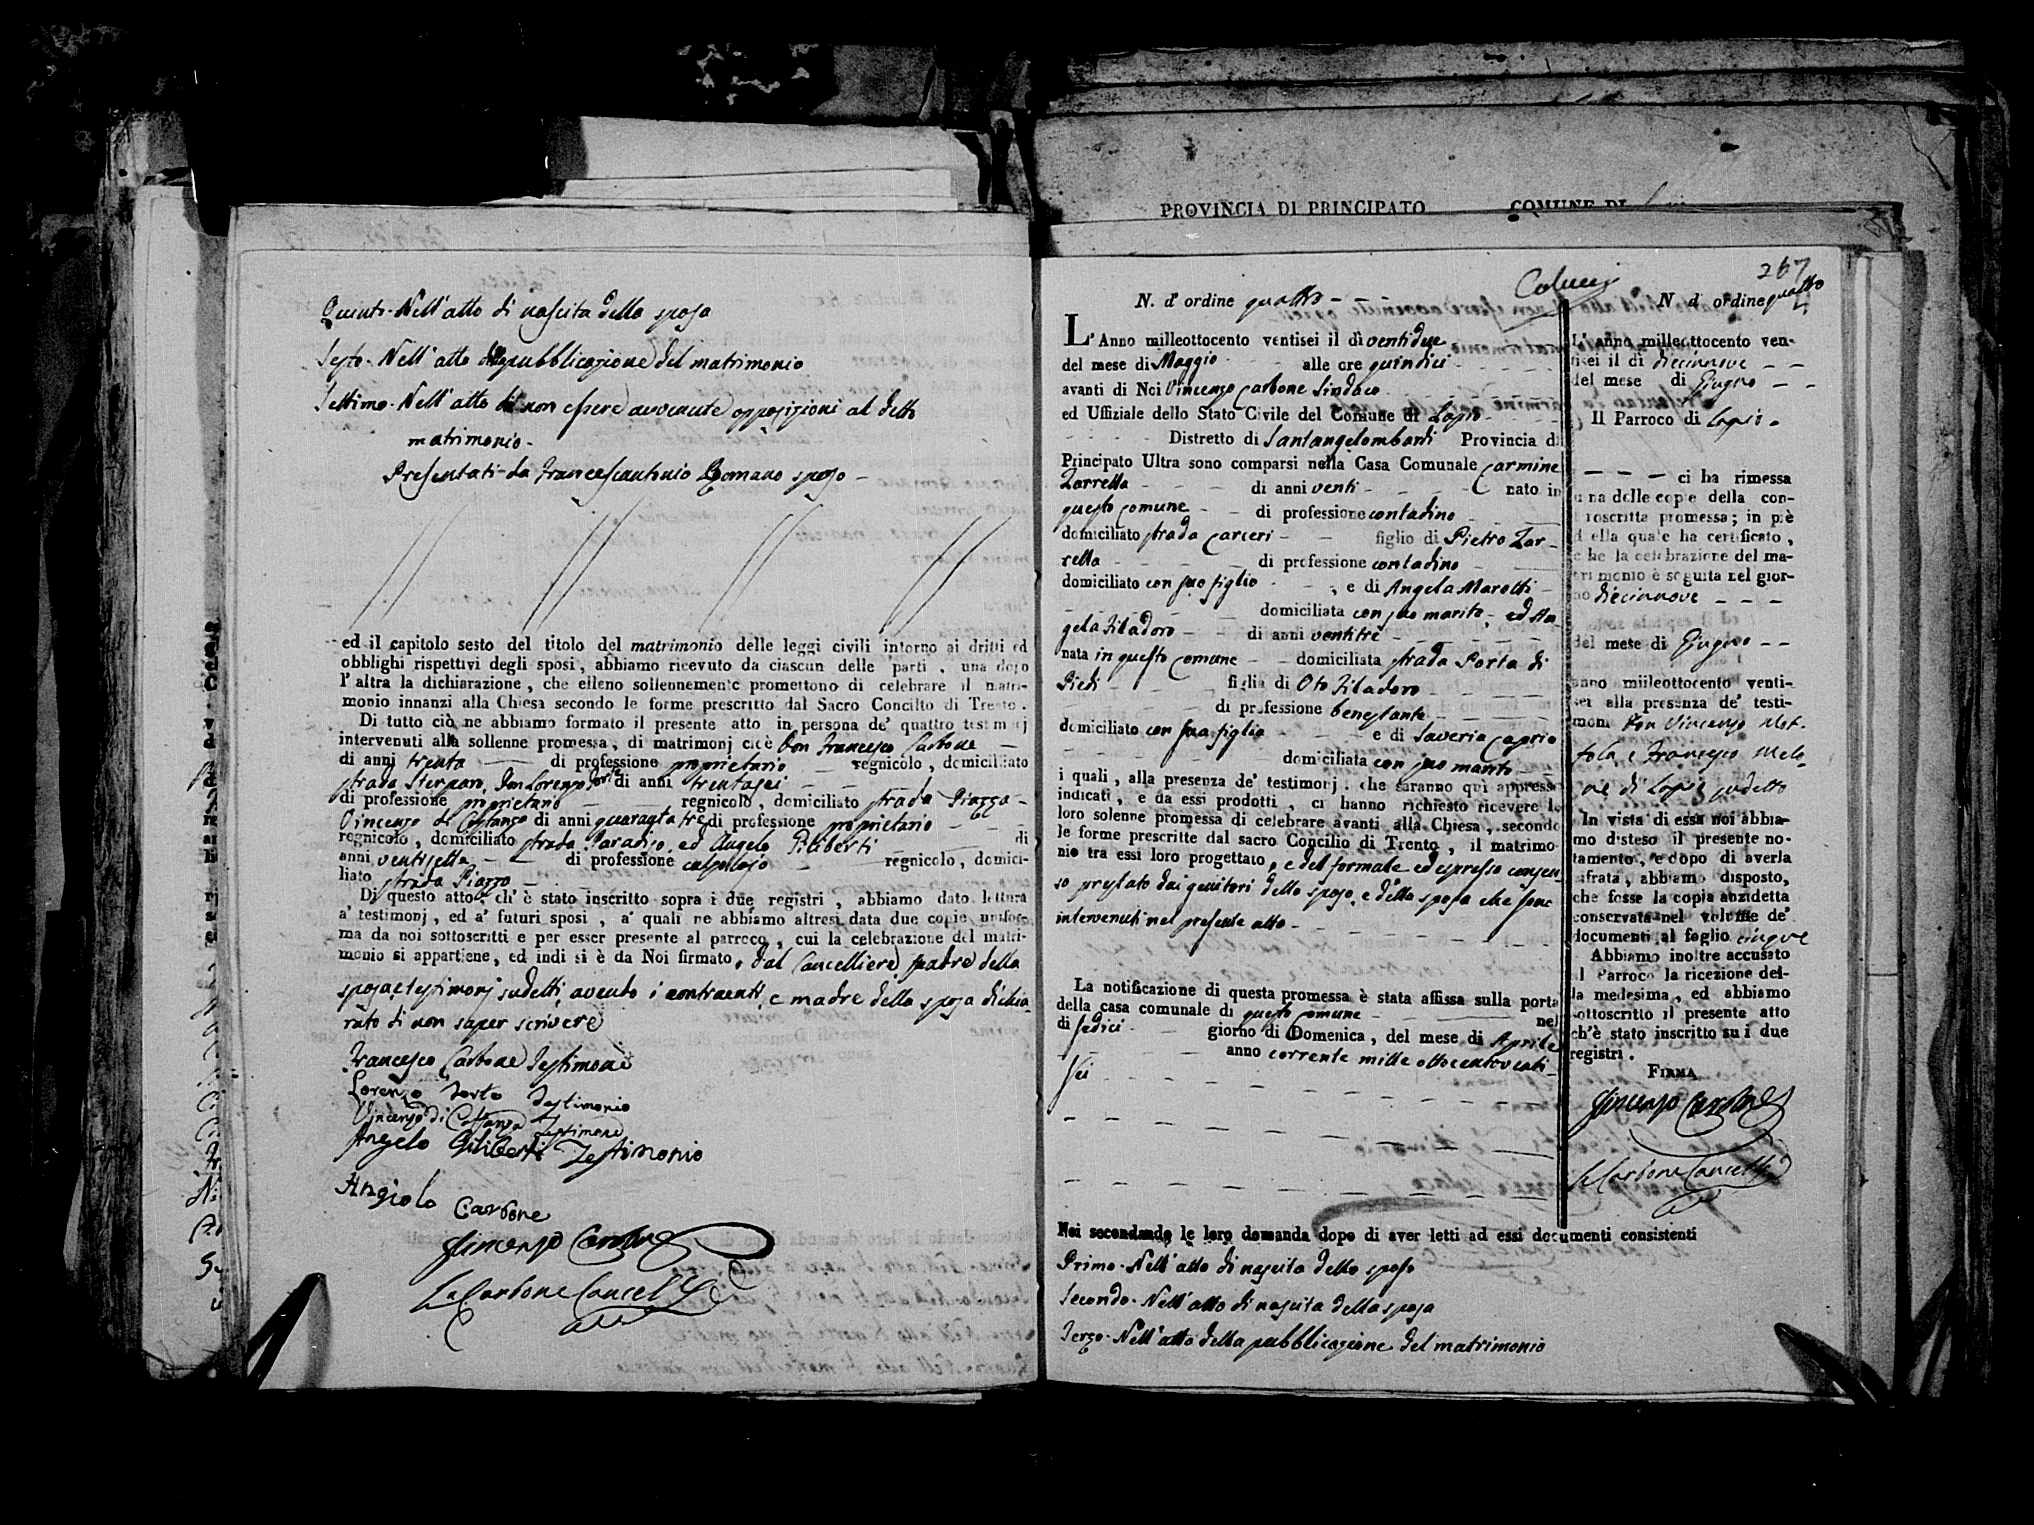 PROVINCIA DI PRINCIPATO COMUNE DI
Quinto. Nell' atto di nascita della sposa
Sesto. Nell' atto della pubblicazione del matrimonio
Settimo. Nell' atto di non essere avvenute opposizioni al detto
matrimonio.
Presentati da Francescantonio Romano sposo
ed il capitolo sesto del titolo del matrimonio delle leggi civili intorno ai dritti ed
obblighi rispettivi degli sposi, abbiamo ricevuto da ciascun delle parti, una dopo
l' altra la dichiarazione, che elleno sollennemente promettono di celebrare il matri-
monio innanzi alla Chiesa secondo le forme prescritto dal Sacro Concilto di Trento.
Di tutto ciò ne abbiamo formato il presente atto in persona de' quattro testimonj
intervenuti alla sollenne promessa, di matrimonj cioè Don Francesco Carbone
di anni trenta di professione proprietario regnicolo, domiciliato
strada Sterpara, Don Lorenzo Forte di anni trentasei
di professione proprietario regnicolo, domiciliato strada Piazza
Vincenzo di Costanzo di anni quarantatre di professione proprietario
regnicolo, domiciliato strada Paradiso, ed Angelo Piliberti di
anni ventisette di professione calzolajo regnicolo, domici-
liato strada Piazza
Di questo atto, ch' è stato inscritto sopra i due registri, abbiamo dato lettura
a' testimonj, ed a' futuri sposi, a' quali ne abbiamo altresì data due copie unifor-
ma da noi sottoscritti e per esser presente al parroco, cui la celebrazione del matri-
monio si appartiene, ed indi si è da Noi firmato, dal Cancelliere, padre della
sposa, e testimonj sudetti, avendo i contraenti, e madre della sposa dichia-
rato di non saper scrivere
Francesco Carbone Testimone
Lorenzo Forte Testimonio
Vincenzo di Costanzo Testimone
Angelo Giliberti Testimonio
Angiolo Carbone
Vincenzo Carbone
Carbone Cancell
Colucci
267
N. d' ordine quattro
L' Anno milleottocento ventisei il dì ventidue
del mese di Maggio alle ore quindici
avanti di Noi Vincenzo Carbone Sindaco
ed Uffiziale dello Stato Civile del Comune di Lapio
Distretto di Santangelombardi Provincia di
Principato Ultra sono comparsi nella Casa Comunale Carmine
Zarrella di anni venti nato in
questo comune di professione contadino
domiciliato strada Carceri figlio di Pietro Zar-
rella di professione contadino
domiciliato con suo figlio e di Angela Marotti
domiciliata con suo marito, ed An
gela Filadoro di anni ventitrè
nata in questo comune domiciliata strada Porta di
Piedi figlia di Oto Filadoro
di professione benestante
domiciliato con sua figlia e di Saveria Caprio
domiciliata con suo marito
i quali, alla presenza de' testimonj, che saranno qui appresso
indicati, e da essi prodotti, ci hanno richiesto ricevere la
loro solenne promessa di celebrare avanti alla Chiesa, secondo
le forme prescritte dal sacro Concilio di Trento, il matrimo-
nio tra essi loro progettato, e del formale ed espresso consen-
so prestato dai genitori dello sposo, e della sposa che sono
intervenuti nel presente atto
La notificazione di questa promessa è stata affissa sulla porta
della casa comunale di questo Comune nel
di sedici giorno di Domenica, del mese di Aprile
anno corrente mille ottocentoventi
sei
Noi secondando le loro domanda dopo di aver letti ad essi documenti consistenti
Primo. Nell' atto di nascita dello sposo
Secondo. Nell' atto di nascita della sposa
Terzo. Nell' atto della pubblicazione del matrimonio
N d' ordine quattro
L' anno milleottocento ven-
tisei il di diecinnove
del mese di Giugno
Il Parroco di Lapio
ci ha rimessa
una delle copie della con-
troscritta promessa; in piè
della quale ha certificato,
che la celebrazione del ma-
trimonio è seguita nel gior-
no diecinnove
del mese di Giugno
anno milleottocento venti-
sei alla presenza de' testi-
moni Don Vincenzo
e Francesco
di Lapio sudetto
In vista di essa noi abbia-
mo disteso il presente no-
tamento, e dopo di averla
cifrata, abbiamo disposto,
che fosse la copia anzidetta
conservata nel volume de'
documenti al foglio cinque
Abbiamo inoltre accusato
al Parroco la ricezione del-
la medesima, ed abbiamo
sottoscritto il presente atto
ch'è stato inscritto su i due
registri.
FIRMA
Vincenzo Carbone
Carbone Cancell